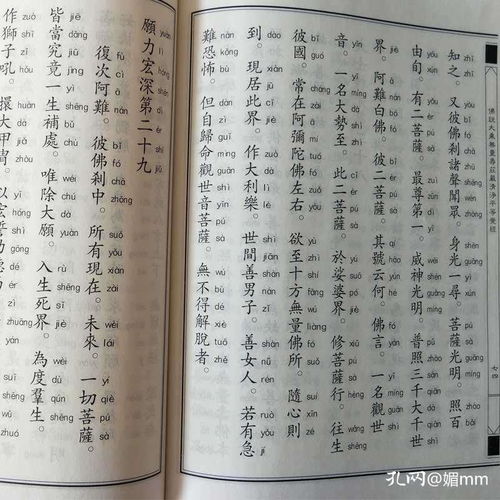 佛說大乘無量壽莊嚴清淨平等覺經
七四
知之。又彼佛剎諸聲聞眾。身光一尋。菩薩光明。照百
由旬。有二菩薩。最尊第一。威神光明。普照三千大千世
界。阿難白佛。彼二菩薩。其號云何。佛言。一名觀世
音。一名大勢至。此二菩薩。於娑婆界。修菩薩行。往生
彼國。常在阿彌陀佛左右。欲至十方無量佛所。隨心則
到。現居此界。作大利樂。世間善男子。善女人。若有急
難恐怖。但自歸命觀世音菩薩。無不得解脫者。
願力宏深第二十九
復次阿難。彼佛剎中。所有現在。未來。一切菩薩。
皆當究竟一生補處。唯除大願。入生死界。為度羣生。
作獅子吼。擐大甲冑。以宏誓功德
孔网@媚mm